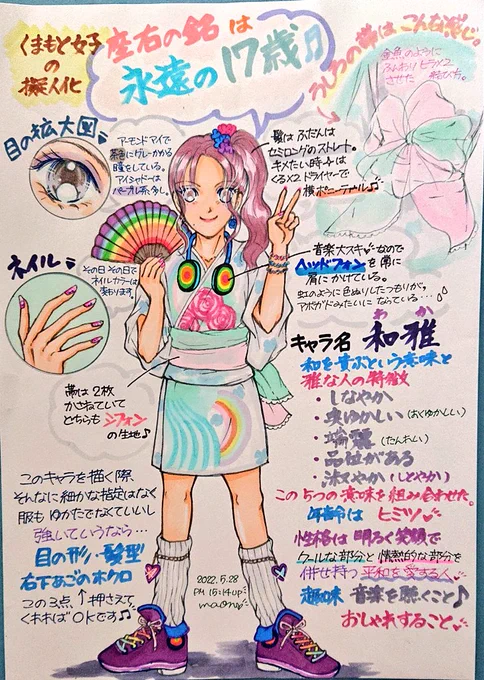 くまもと女子
の
擬人化
座右の銘は
永遠の17歳♫
うしろの帯はこんな感じ。
金魚のように
ふんわりヒラヒラ
させた
結び方。
目の拡大図
アーモンドアイで
茶色にグレーかかる
瞳をしている。
アイシャドーは
パープル系多し。
髪はふだんは
セミロングのストレート。
キメたい時は
くる×2ドライヤーで
横ポニーテール♫
ネイル
その日その日で
ネイルカラーは
変わります。
音楽大スキ♥なので
ヘッドフォンを南に
肩にかけている。
虹のように色ぬりしたつもりが。
アボガドみたいになっている…
帯は2枚
かさねていて
どちらもシフォン
の生地♪
わか
キャラ名 和雅
和を貴ぶという意味と
雅な人の特徴
・しなやか
・奥ゆかしい(おくゆかしい)
・端麗(たんれい)
・品位がある
・淑やか(しとやか)
この5つの意味を組み合わせた。
年齢はヒミツ♥
性格は明るく笑顔で
クールな部分と情熱的な部分を
併せ持つ平和を愛する人。
趣味 音楽を聴くこと♪
おしゃれすること♥
このキャラを描く際、
そんなに細かな指定はなく
服もゆかたでなくていいし
強いていうなら…
目の形・髪型
右下あごのホクロ
この3点↑押さえて
くれればOKです♫
2022.5.28
PM 15:14up
maomo